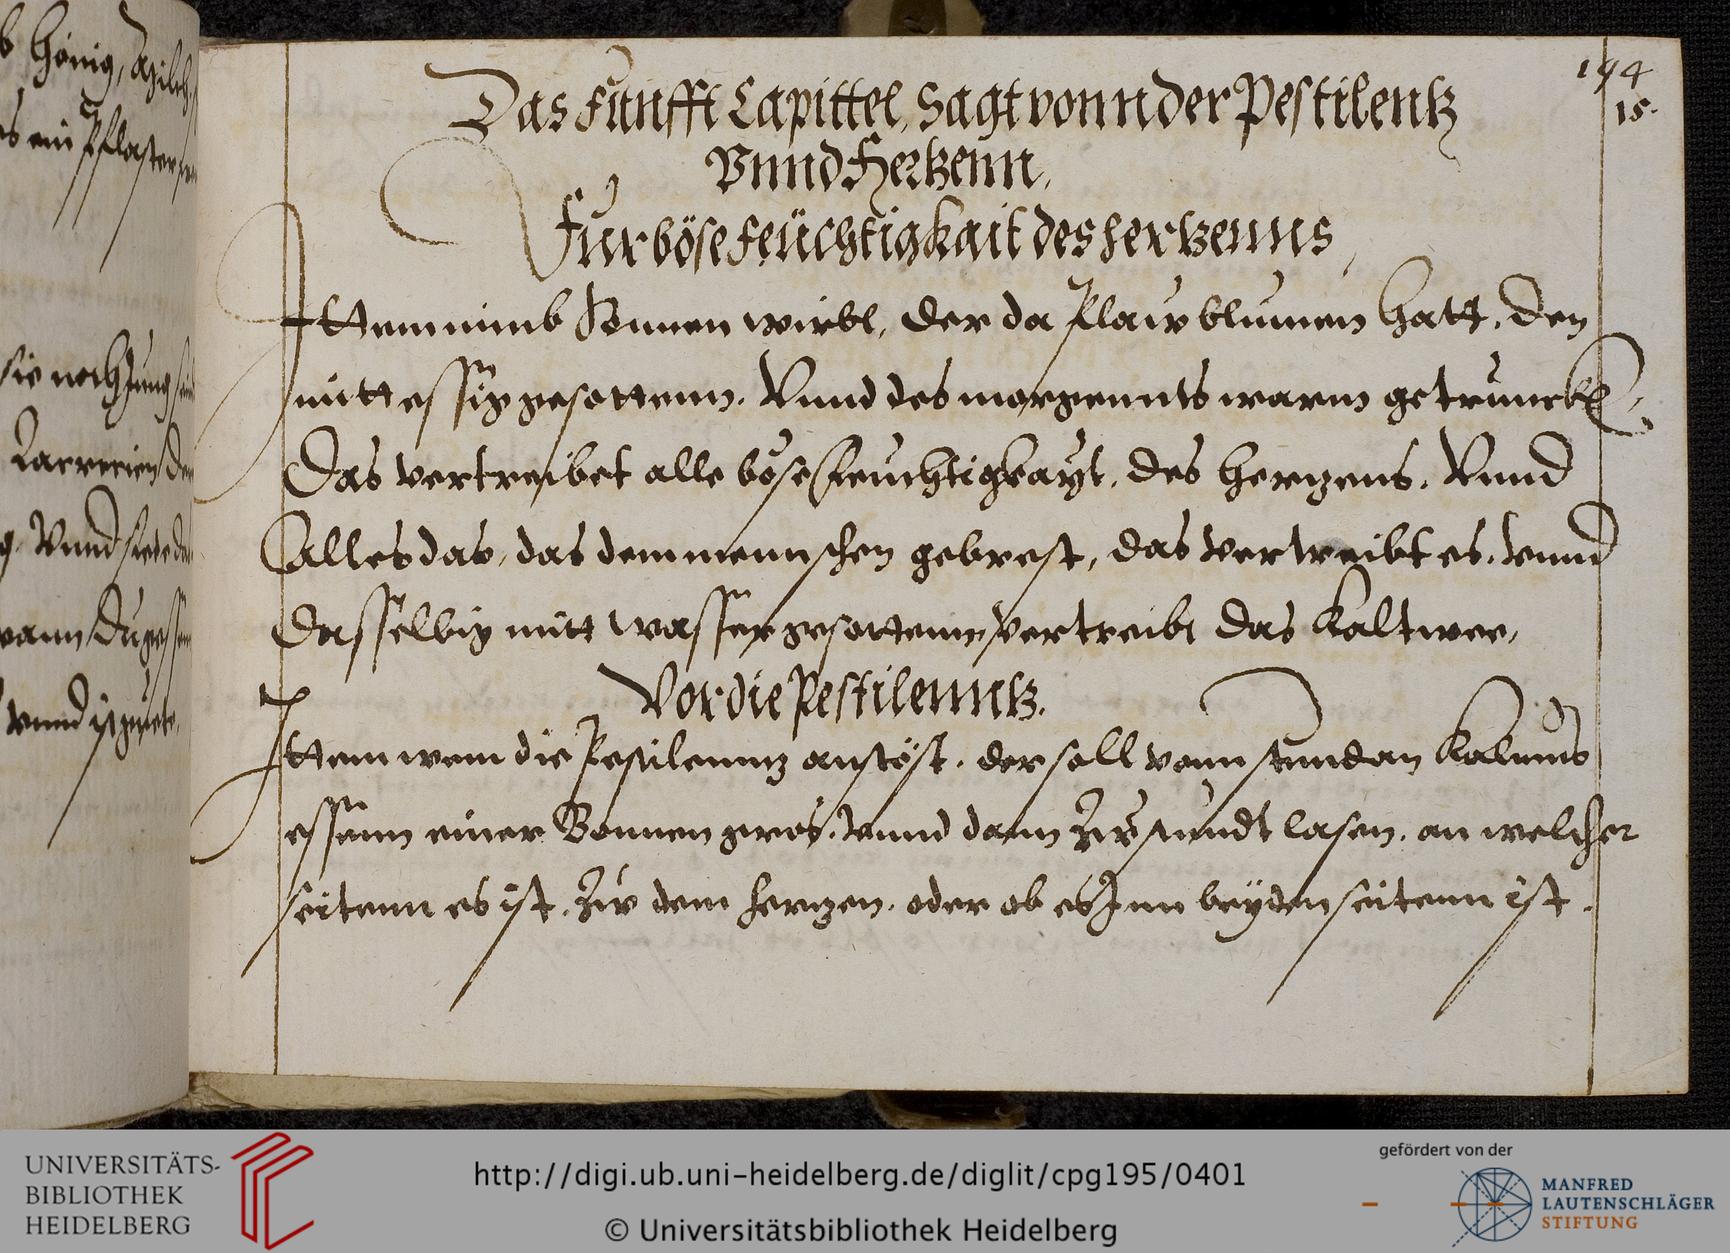 194
15.
Das Funfft Capittel, Sagt vonn der Pestilentz
Vnnd Hertzenn,
Fur böse feüchtigkait des hertzenns,
Ittem nimb Sonnen wirbl, der da plaw blumen hatt, den
mitt essig gesottenn. Vnnd des morgennts warm getrunckh,
Das vertreibet alle böse feuchtigkayt, des hertzens, Vnnd
Alles das, das dem mennschen gebrest, das vertreibt es, vnnd
dasselbig mitt wasser gesottenn, vertreibt das kaltwee,
Vor die Pestilenntz.
Ittem wem die Pestilenntz anstöst, der soll vonn stund an
essenn einer Bonnen gros, Vnnd dann lasen, an welcher
seitenn es ist, Zw dem hertzen, oder ob es Inn beyden seitenn ist.
b hönig,
es ein Pflaster
sie noch Jung
Vnnd siede
wann Du
vnnd
UNIVERSITÄTS-
BIBLIOTHEK
HEIDELBERG
http://digi.ub.uni-heidelberg.de/diglit/cpg195/0401
© Universitätsbibliothek Heidelberg
gefördert von der
MANFRED
LAUTENSCHLÄGER
STIFTUNG